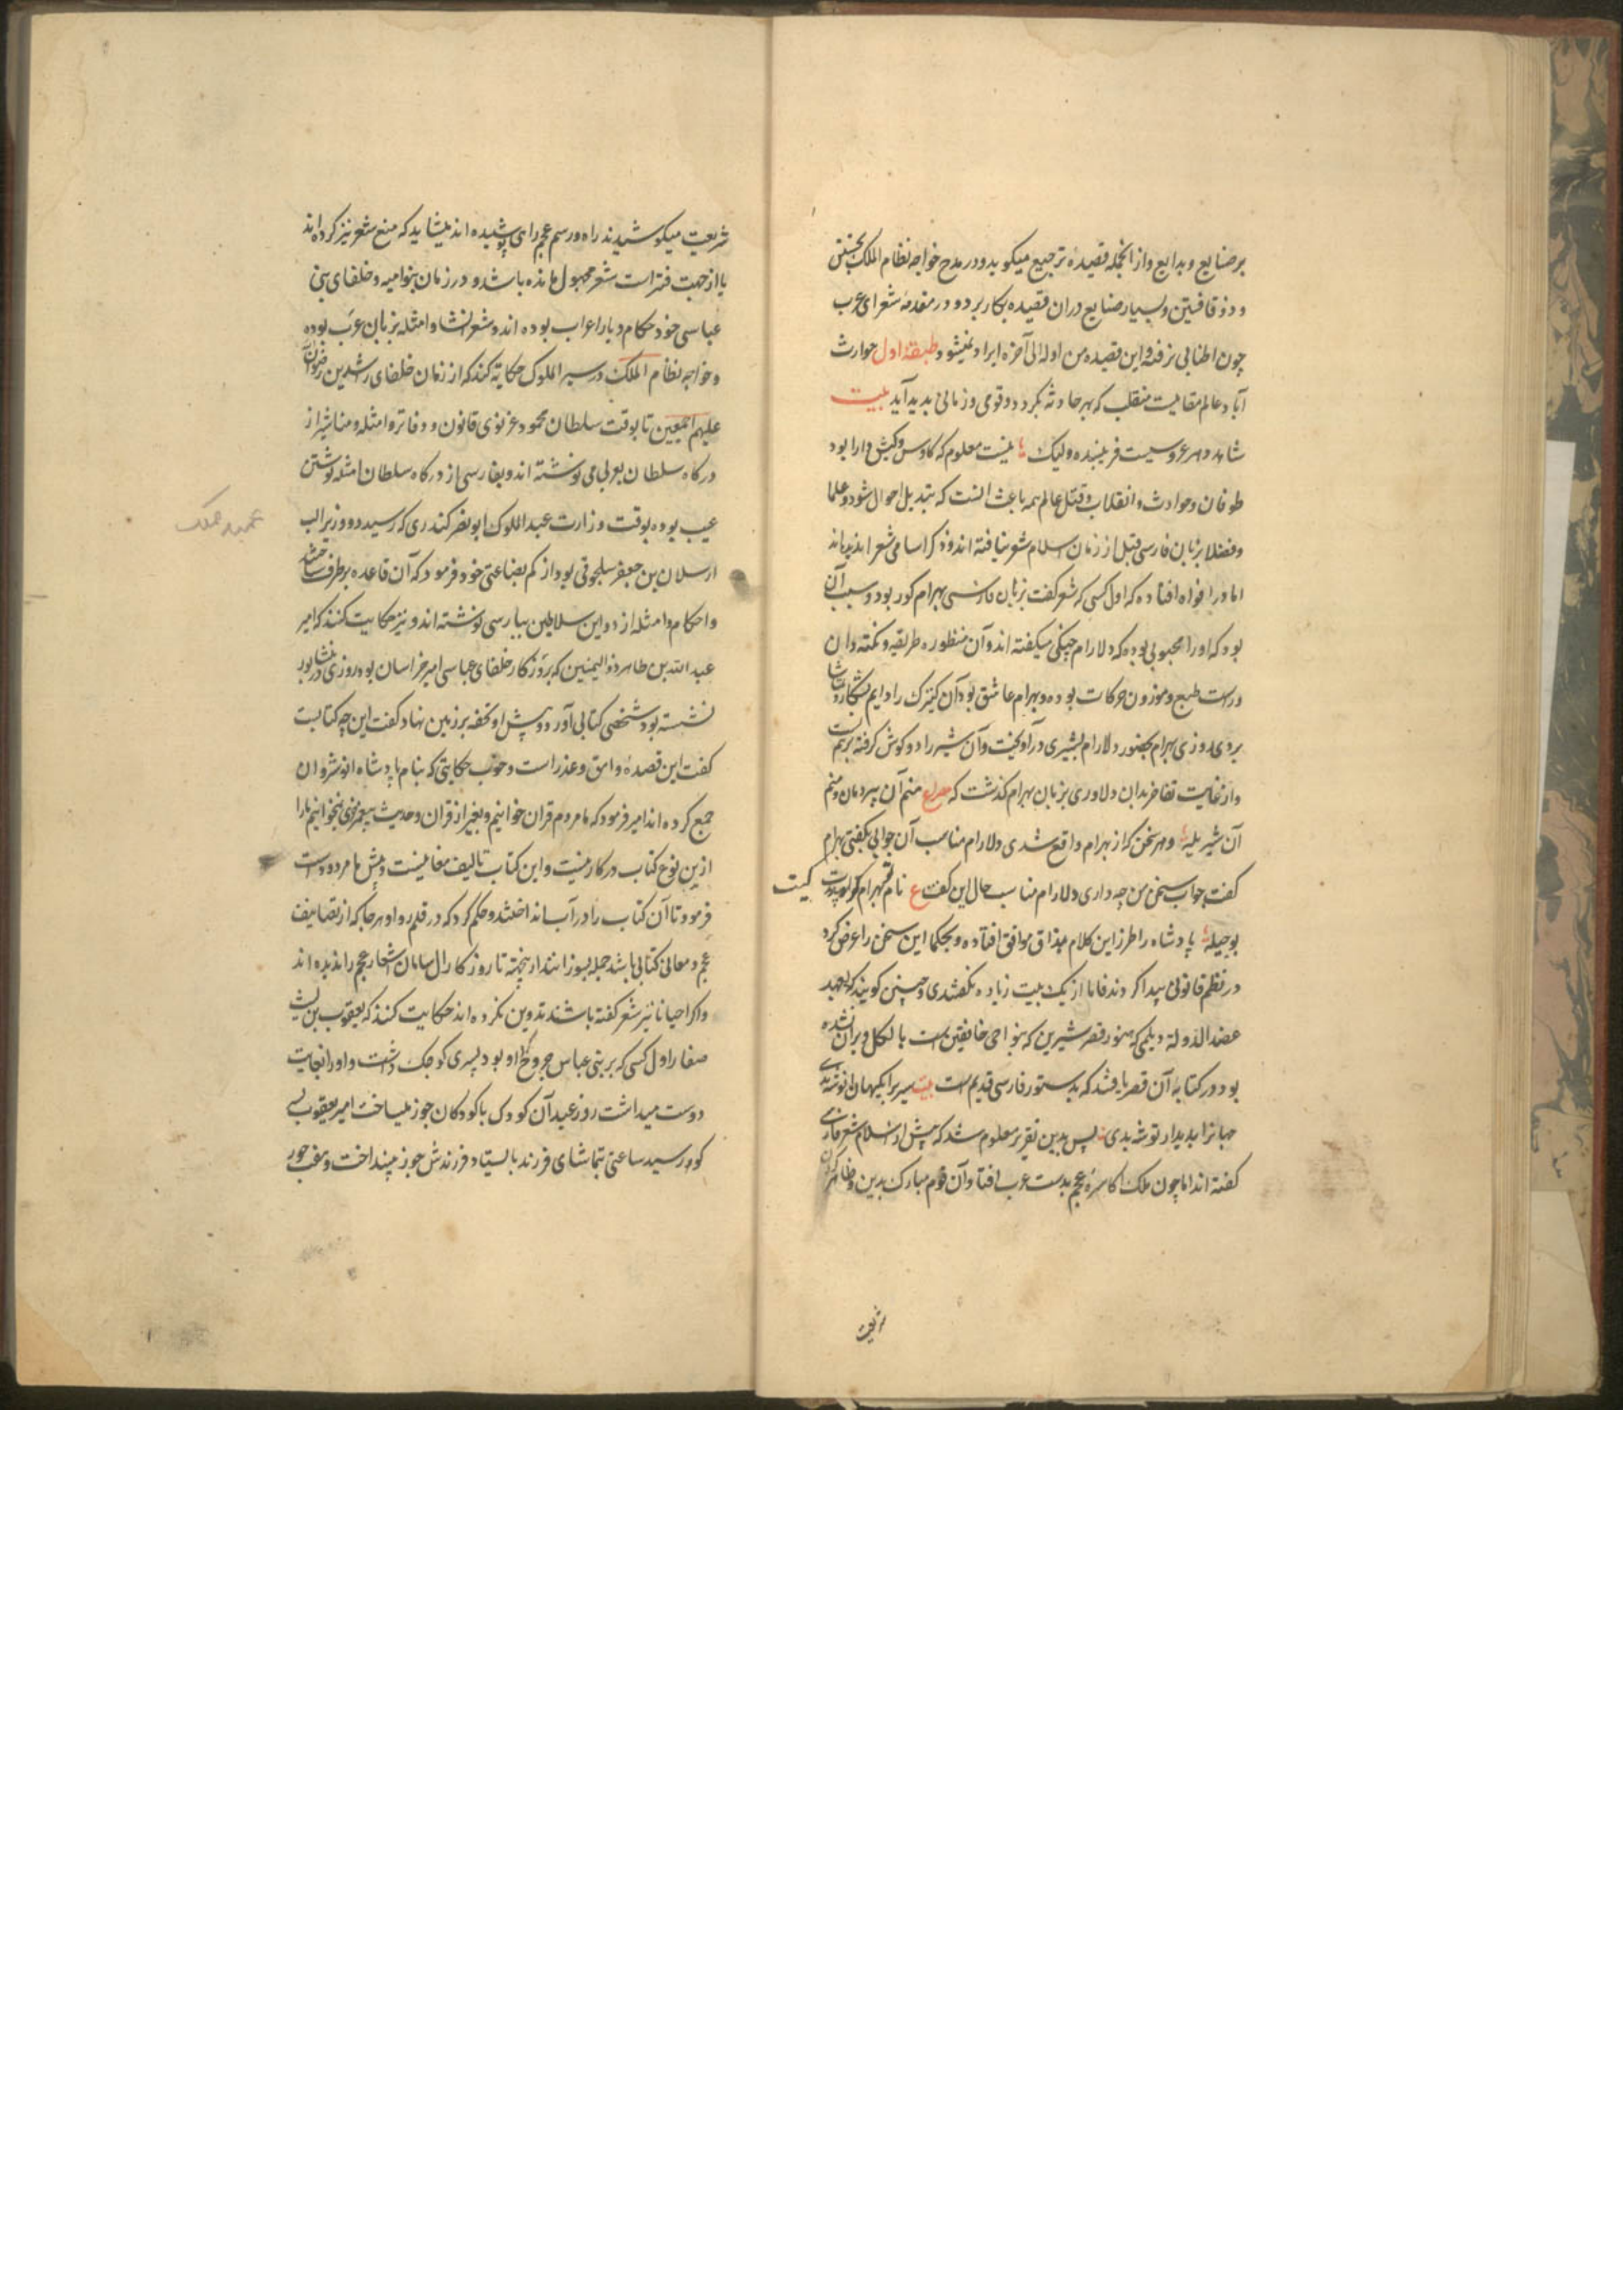 بر صنایع و بدایع و از انجمله قصیدهٔ ترجیع میکوید و در مدح خواجه نظام الملک
و ذو قافیتین و بسیار صنایع دران قصیده بکار برد و در مقدمهٔ شعرای عرب
چون اطنابی نرفته و این قصیده من اوله الی آخره ایراد نمیشود طبقهٔ اول حوارث
آباد عالم مقامیست منقلب که بهر حادثه بکردد و قومی و زمانی بدید آید بیت
شاهد دهر عروسیست فریبنده ولیک نیست معلوم که کاوس و کیش دارا بود
طوفان و حوادث و انقلاب و قتل عالم همه باعث انست که تبدیل احوال شود و علما
و فضلا بزبان فارسی قبل از زمان اسلام شعر نیافته اند و ذکر اسامی شعرا ندیده اند
اما در افواه افتاده که اول کسی که شعر کفت بزبان فارسی بهرام کور بود و سبب آن
بود که او را محبوبی بوده که دلارام چنکی میکفته اند و آن منظوره ظریفه و نکته دان
و راست طبع و موزون حرکات بوده و بهرام عاشق بود آن کنیزک را دایم بشکار و تماشا
بردی روزی بهرام بحضور دلارام بشیری در آویخت و آن شیر را دو کوش کرفته برهم بست
و از غایت تفاخر بدان دلاوری بزبان بهرام کذشت که مصراع منم آن پیر دمان و منم
آن شیر یله و هر سخن که از بهرام واقع شدی دلارام مناسب آن جوابی بکفتی بهرام
کفت جواب سخن من چه داری دلارام مناسب حال این کفت ع نام بهرام ترا و پدرت
کیت
بوجبله پادشاه را طرز این کلام بمذاق موافق افتاده و بحکما این سخن را عرض کرد
در نظم قانونی پیدا کردند فاما از یک بیت زیاده نکفتندی و چنین کویند که بعهد
عضد الدوله دیلمی که هنوز قصر شیرین که بنواحی خانقین است بالکل ویران نشده
بود در کتابه آن قصر یافتند که بدستور فارسی قدیم است بیت هزبرا بکیهان انوشه بدی
جهانرا بدیدار توشه بدی پس بدین تقریر معلوم شد که پیش از اسلام شعر فارسی
کفته اند اما چون ملک اکاسره عجم بدست عرب افتاد و آن قوم مبارک بدین و ظاهر کردن
شریعت
شریعت میکوشیدند راه و رسم عجم را می پوشیده اند میشاید که منع شعر نیز کرده اند
یا از جهت فترات شعر مجهول مانده باشد و در زمان بنوامیه و خلفای بنی
عباسی خود حکام دیار اعراب بوده اند و شعر و انشا و امثله بزبان عرب بوده
و خواجه نظام الملک در سیر الملوک حکایت کند که از زمان خلفای راشدین رضوان
علیهم اجمعین تا بوقت سلطان محمود غزنوی قانون و دفاتر و امثله و مناشیر از
درکاه سلطان بعربی می نوشته اند و بفارسی از درکاه سلطان امثله نوشتن
عیب بوده بوقت وزارت عبد الملوک ابو نصر کندری که رسید و وزیر الب
عمید الملک
ارسلان بن جعفر سلجوقی بود از کم بضاعتی خود فرمود که آن قاعده بر طرف ساختند
و احکام و امثله از دواین سلاطین بپارسی نوشته اند و نیز حکایت کنند که امیر
عبد الله بن طاهر ذو الیمینین که بروزکار خلفای عباسی امیر خراسان بود روزی در نشابور
نشسته بود شخصی کتابی آورد و پیش او تحفه بر زمین نهاد کفت این چه کتابست
کفت این قصهٔ وامق و عذراست و خوب حکایتی که بنام پادشاه انوشروان
جمع کرده اند امیر فرمود که ما مردم قران خوانیم و بغیر از قران و حدیث پیغمبر چیزی نمیخوانیم ما را
ازین نوع کتاب در کار نیست و این کتاب تالیف مغانیست و پیش ما مردودست
فرمود تا آن کتاب را در آب انداختند و حکم کرد که در قلمرو او هر جا که از تصانیف
عجم و معانی کتابی باشد جمله بسوزانند ازینجهت تا روزکار ال سامان اشعار عجم را ندیده اند
و اکر احیانا نیز شعر کفته باشند تدوین نکرده اند حکایت کنند که یعقوب بن لیث
صفار اول کسی که بر بنی عباس خروج کرد او بود پسری کوچک داشت و او را بغایت
دوست میداشت روز عید آن کودک با کودکان جوز میباخت امیر یعقوب بسر
کو رسید ساعتی بتماشای فرزند بایستاد فرزندش جوز بینداخت و هفت جوز